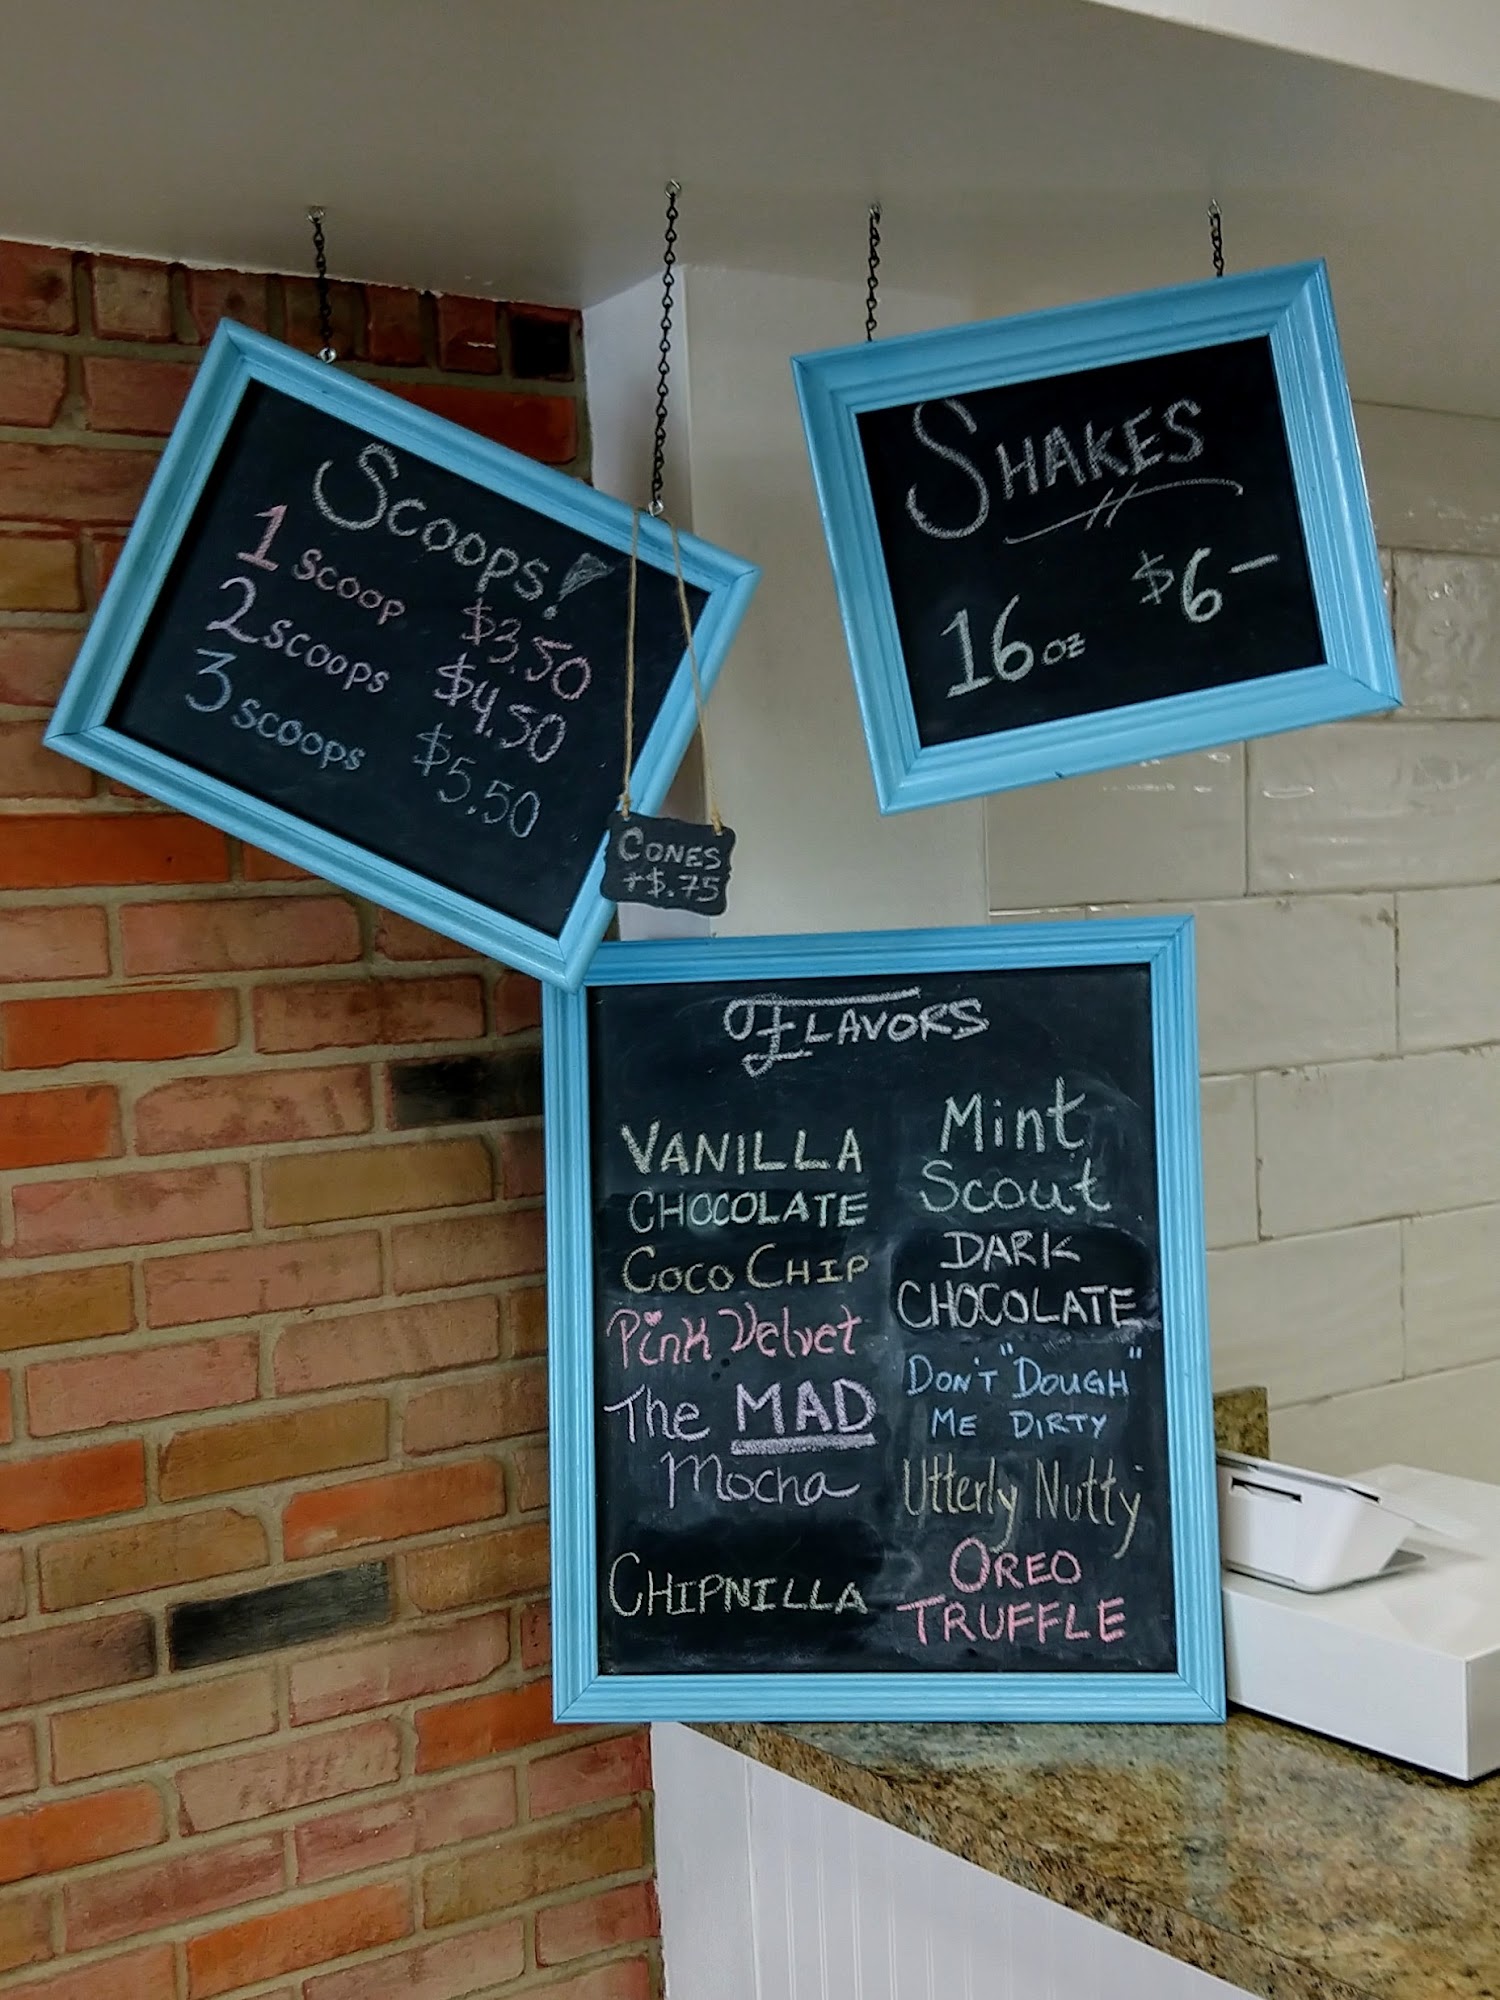 Scoops!
1 scoop $3.50
2 scoops $4.50
3 scoops $5.50
CONES
+$.75
SHAKES
16 oz $6-
FLAVORS
VANILLA
CHOCOLATE
COCO CHIP
Pink Velvet
The MAD
Mocha
CHIPNILLA
Mint
Scout
DARK
CHOCOLATE
DON'T "DOUGH"
ME DIRTY
Utterly Nutty
OREO
TRUFFLE